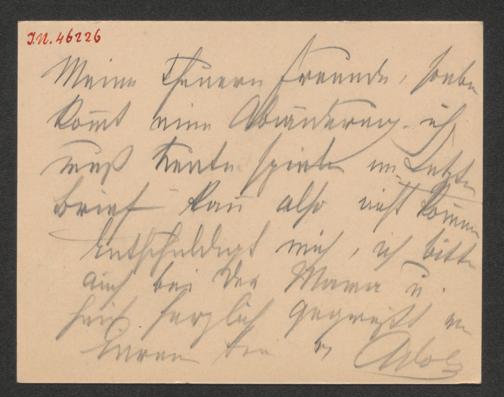 I.N. 46226
Meine theuern Freunde, soeben
kom̅t eine Abänderung. ich
muß heute spielen im „Letzten
Brief“ kan̅ also nicht kom̅en
Entschuldigt mich, ich bitte
auch bei der Mama u.
seid herzlich gegrüßt von
Eurem